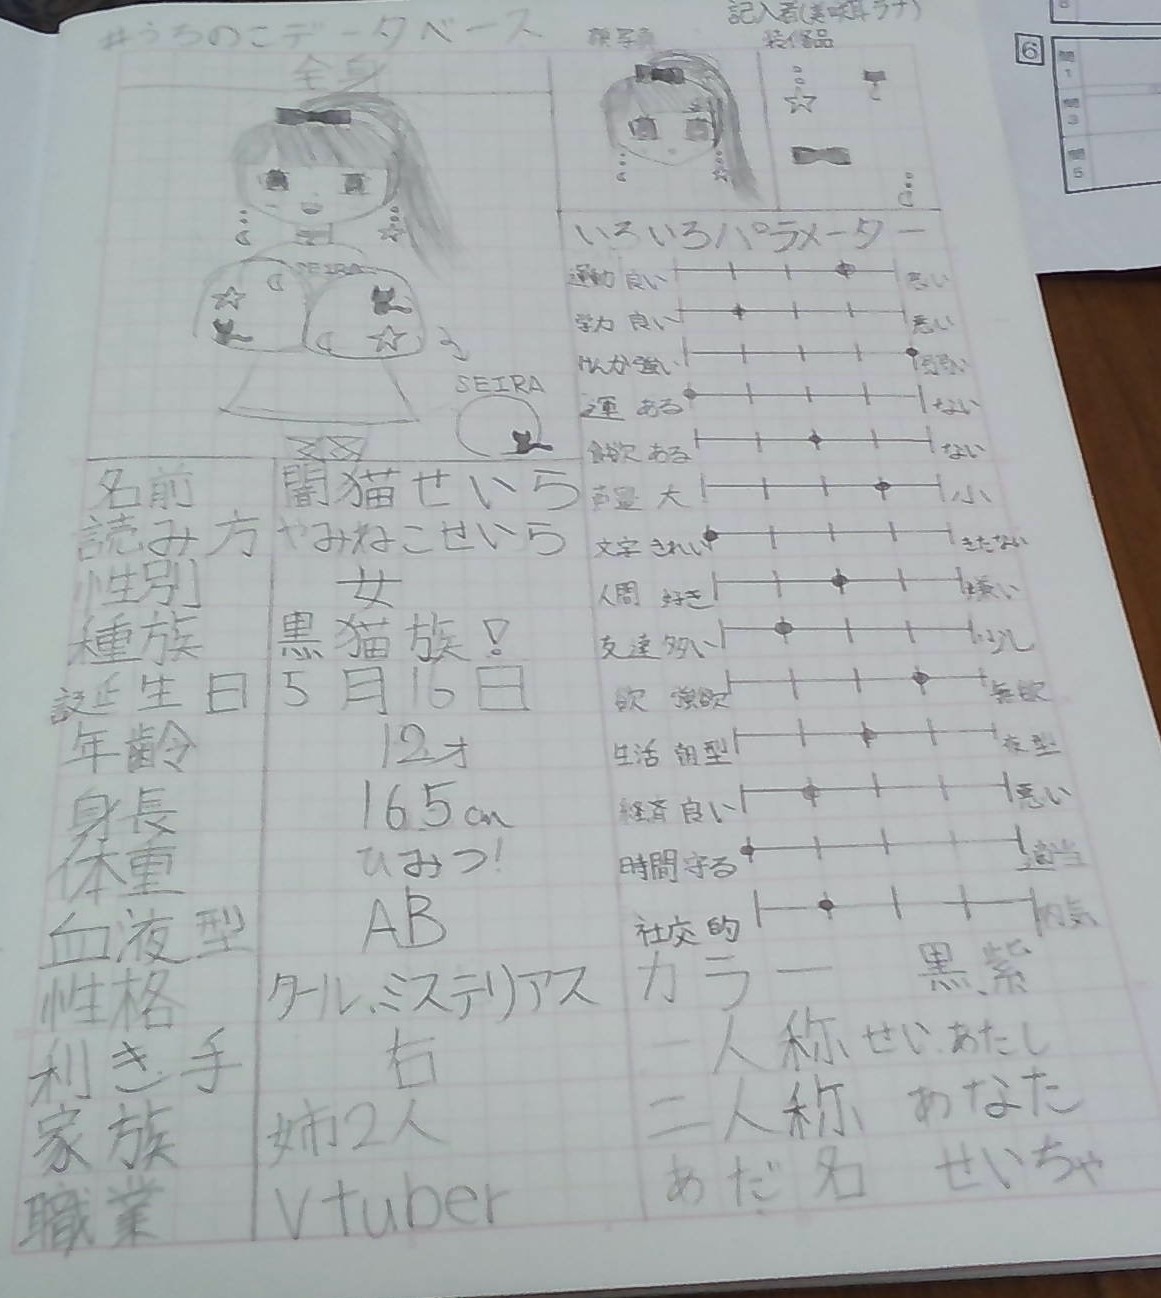 #うちのこデータベース
記入者(美味耳ラナ)
全身
顔写真
装備品
SEIRA
SEIRA
いろいろパラメーター
運動 良い 悪い
学力 良い 悪い
けんか 強い 弱い
運 ある ない
食欲 ある ない
声量 大 小
文字 きれい きたない
人間 好き 嫌い
友達 多い 少し
欲 強欲 無欲
生活 朝型 夜型
経済 良い 悪い
時間 守る 適当
社交的 内気
名前 闇猫せいら
読み方 やみねこせいら
性別 女
種族 黒猫族!
誕生日 5月16日
年齢 12才
身長 165cm
体重 ひみつ!
血液型 AB
性格 クール、ミステリアス
利き手 右
家族 姉2人
職業 Vtuber
カラー 黒、紫
一人称 せい、あたし
二人称 あなた
あだ名 せいちゃ
6
問1
問3
問5